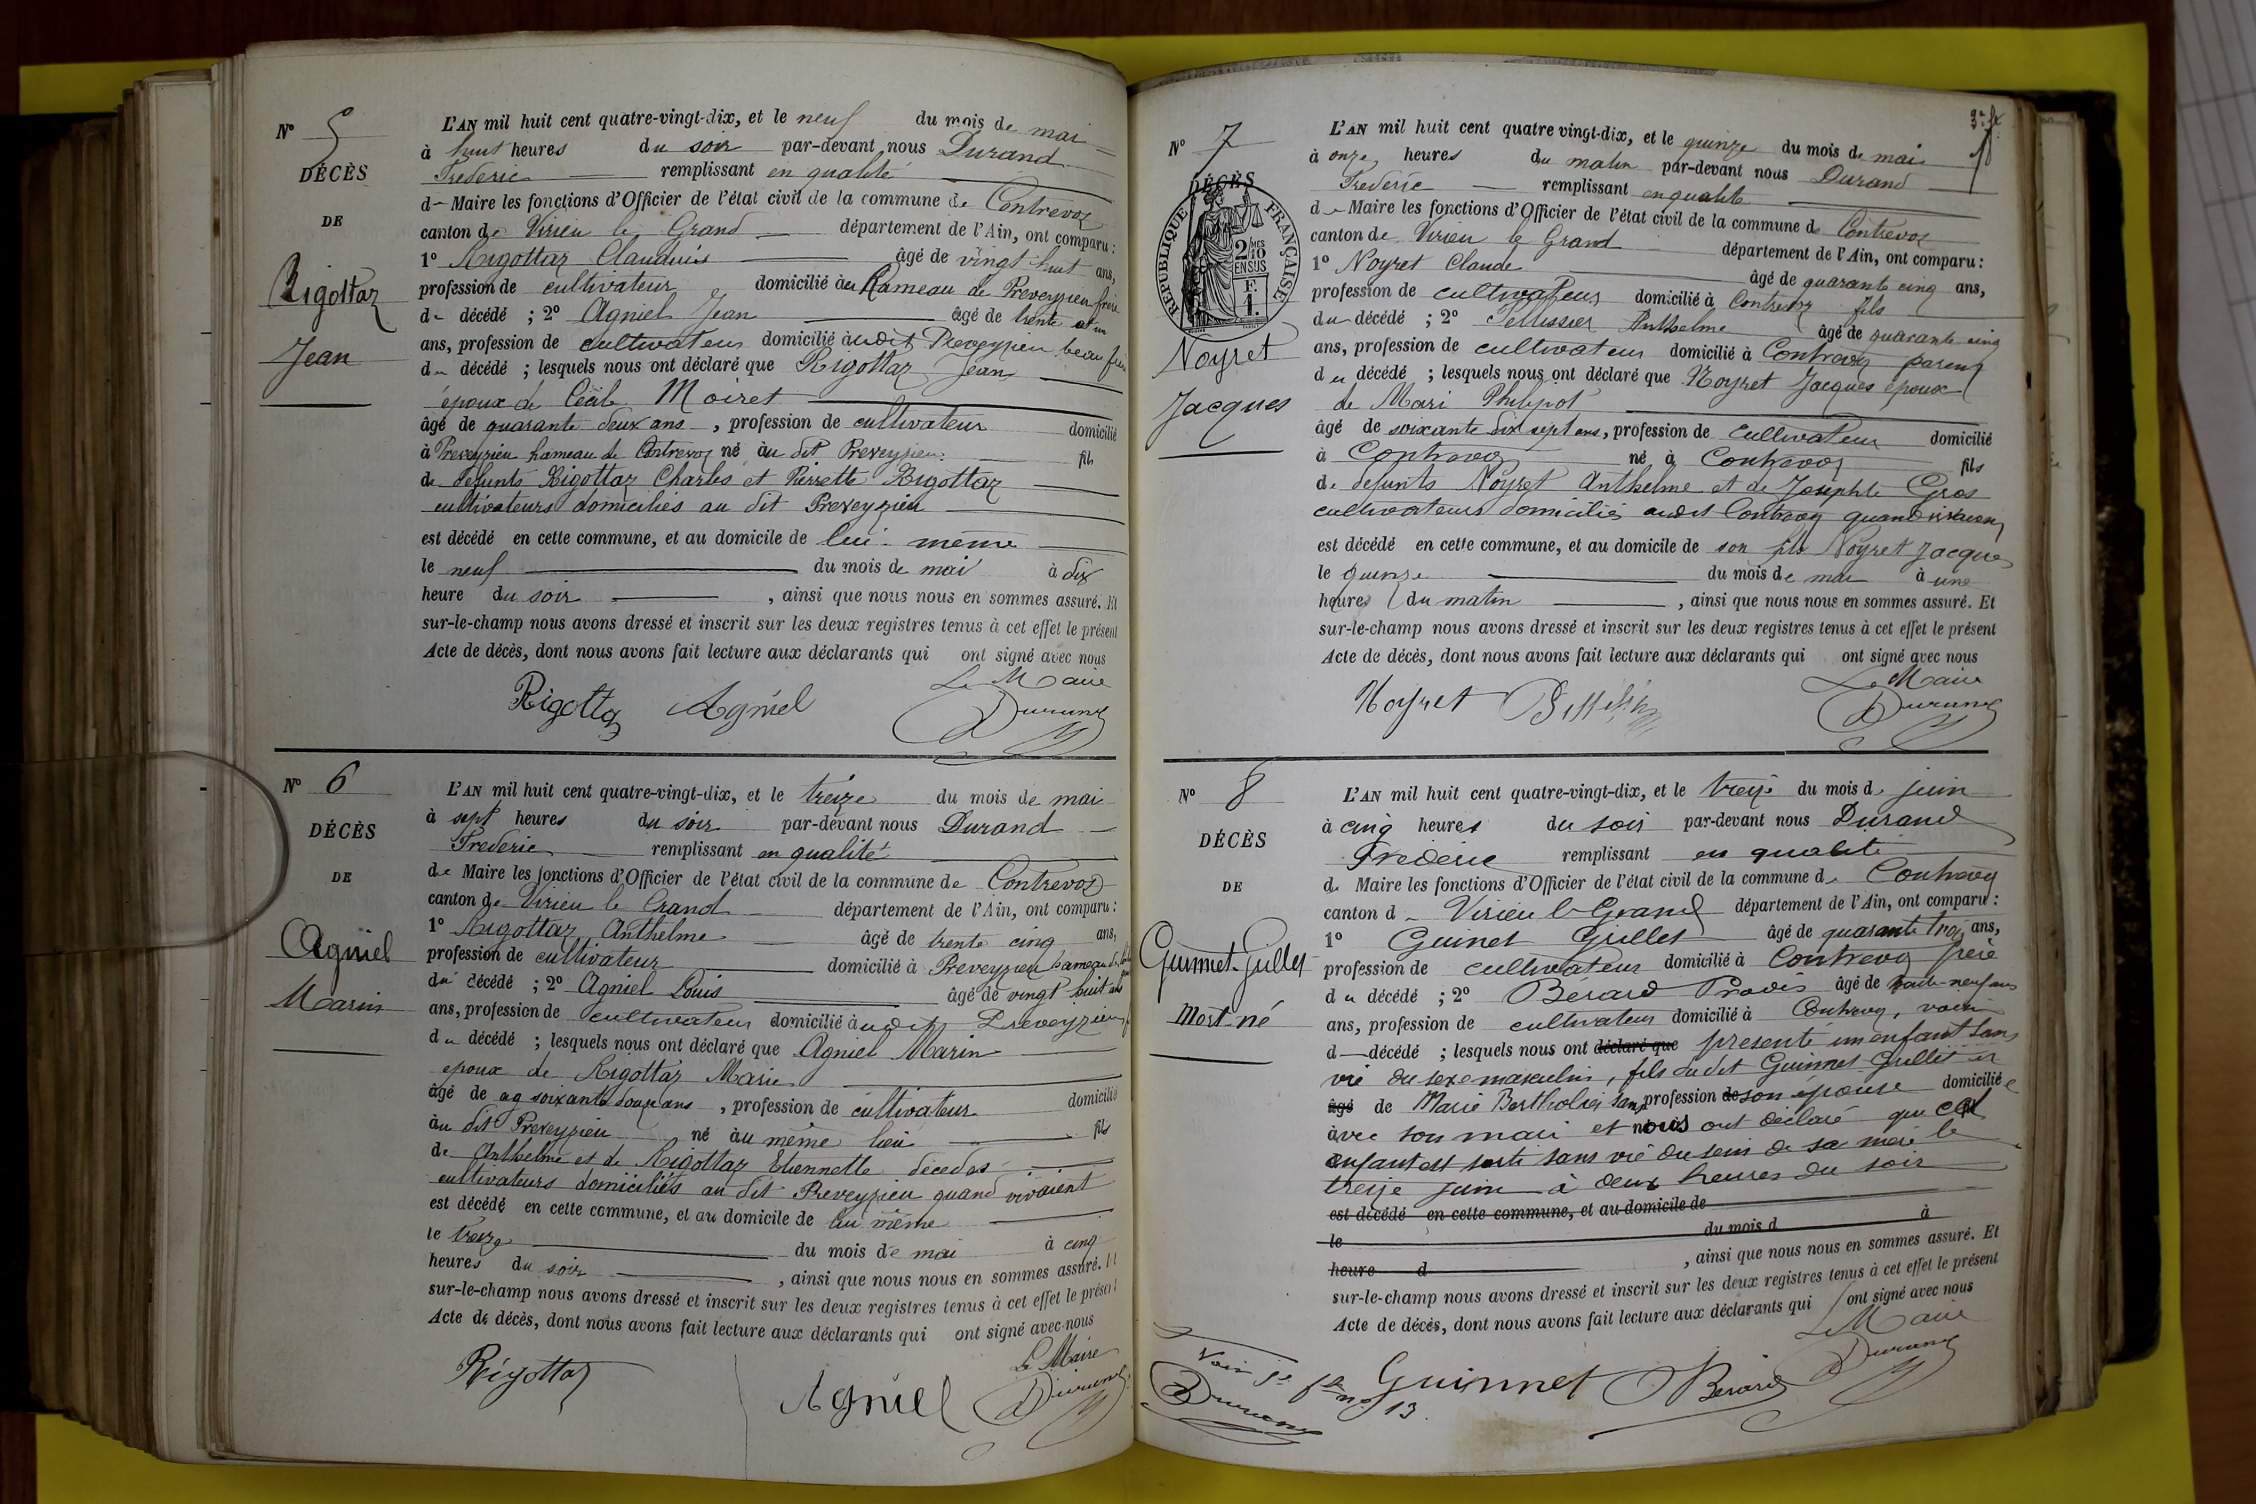 N° 5
DÉCÈS
DE
Rigottaz
Jean
L'AN mil huit cent quatre-vingt-dix, et le neuf du mois de mai
à huit heures du soir par-devant nous Durand
Frederic remplissant en qualité
de Maire les fonctions d'Officier de l'état civil de la commune de Contrevoz
canton de Virieu le Grand département de l'Ain, ont comparu :
1° Rigottaz Claudius âgé de vingt huit ans,
profession de cultivateur domicilié au Hameau de Preveyzieu frère
du décédé ; 2° Agniel Jean âgé de trente et un
ans, profession de cultivateur domicilié audit Preveyzieu beau frère
du décédé ; lesquels nous ont déclaré que Rigottaz Jean
époux de Cécile Moiret
âgé de quarante deux ans, profession de cultivateur domicilié
à Preveyzieu hameau de Contrevoz né au dit Preveyzieu fils
de defunts Rigottaz Charles et Pierrette Rigottaz
cultivateurs domiciliés au dit Preveyzieu
est décédé en cette commune, et au domicile de lui-même
le neuf du mois de mai à dix
heure du soir, ainsi que nous nous en sommes assuré. Et
sur-le-champ nous avons dressé et inscrit sur les deux registres tenus à cet effet le présent
Acte de décès, dont nous avons fait lecture aux déclarants qui ont signé avec nous
Le Maire
Rigottaz Agniel Durand
N° 6
DÉCÈS
DE
Agniel
Marin
L'AN mil huit cent quatre-vingt-dix, et le treize du mois de mai
à sept heures du soir par-devant nous Durand
Frederic remplissant en qualité
de Maire les fonctions d'Officier de l'état civil de la commune de Contrevoz
canton de Virieu le Grand département de l'Ain, ont comparu :
1° Rigottaz Anthelme âgé de trente cinq ans,
profession de cultivateur domicilié à Preveyzieu hameau de
du décédé ; 2° Agniel Louis âgé de vingt huit ans
ans, profession de cultivateur domicilié audit Preveyzieu
du décédé ; lesquels nous ont déclaré que Agniel Marin
epoux de Rigottaz Marie
âgé de ag soixante douze ans, profession de cultivateur domicilié
au dit Preveyzieu né au même lieu fils
de Anthelme et de Rigottaz Etiennette décédés
cultivateurs domiciliés au dit Preveyzieu quand vivaient
est décédé en cette commune, et au domicile de lui même
le treize du mois de mai à cinq
heures du soir, ainsi que nous nous en sommes assuré. Et
sur-le-champ nous avons dressé et inscrit sur les deux registres tenus à cet effet le présent
Acte de décès, dont nous avons fait lecture aux déclarants qui ont signé avec nous
Le Maire
Rigottaz Agniel Durand
N° 7
DÉCÈS
RÉPUBLIQUE FRANÇAISE
2/10 MES
EN SUS
F.
1.
Noyret
Jacques
L'AN mil huit cent quatre vingt-dix, et le quinze du mois de mai
à onze heures du matin par-devant nous Durand
Frederic remplissant en qualité
de Maire les fonctions d'Officier de l'état civil de la commune de Contrevoz
canton de Virieu le Grand département de l'Ain, ont comparu :
1° Noyret Claude âgé de quarante cinq ans,
profession de cultivateur domicilié à Contrevoz fils
du décédé ; 2° Pellissier Anthelme âgé de quarante cinq
ans, profession de cultivateur domicilié à Contrevoz parent
du décédé ; lesquels nous ont déclaré que Noyret Jacques époux
de Mari Philipot
âgé de soixante dix sept ans, profession de cultivateur domicilié
à Contrevoz né à Contrevoz fils
de defunts Noyret Anthelme et de Josephte Gros
cultivateurs domiciliés audit Contrevoz quand vivaient
est décédé en cette commune, et au domicile de son fils Noyret Jacques
le quinze du mois de mai à une
heures du matin, ainsi que nous nous en sommes assuré. Et
sur-le-champ nous avons dressé et inscrit sur les deux registres tenus à cet effet le présent
Acte de décès, dont nous avons fait lecture aux déclarants qui ont signé avec nous
Le Maire
Noyret Durand
N° 8
DÉCÈS
DE
Guinnet-Grillet
Mort-né
L'AN mil huit cent quatre-vingt-dix, et le treize du mois de juin
à cinq heures du soir par-devant nous Durand
Frédéric remplissant en qualité
de Maire les fonctions d'Officier de l'état civil de la commune de Contrevoz
canton de Virieu le Grand département de l'Ain, ont comparu :
1° Guinet Grillet âgé de quarante trois ans,
profession de cultivateur domicilié à Contrevoz père
du décédé ; 2° Bérard Provis âgé de trente-neuf ans
ans, profession de cultivateur domicilié à Contrevoz, voisin
d décédé ; lesquels nous ont déclaré que presenté un enfant sans
vie du sexe masculin, fils dudit Guinnet-Grillet et
âgé de Marie Bertholier sans profession de son épouse domiciliée
avec son mari et nous ont déclaré que cet
enfant est sorti sans vie du sein de sa mère le
treize juin à deux heures du soir
est décédé en cette commune, et au domicile de
le du mois d à
heure d, ainsi que nous nous en sommes assuré. Et
sur-le-champ nous avons dressé et inscrit sur les deux registres tenus à cet effet le présent
Acte de décès, dont nous avons fait lecture aux déclarants qui ont signé avec nous
Le Maire
Guinnet Bérard Durand
Voir n° 13
Durand